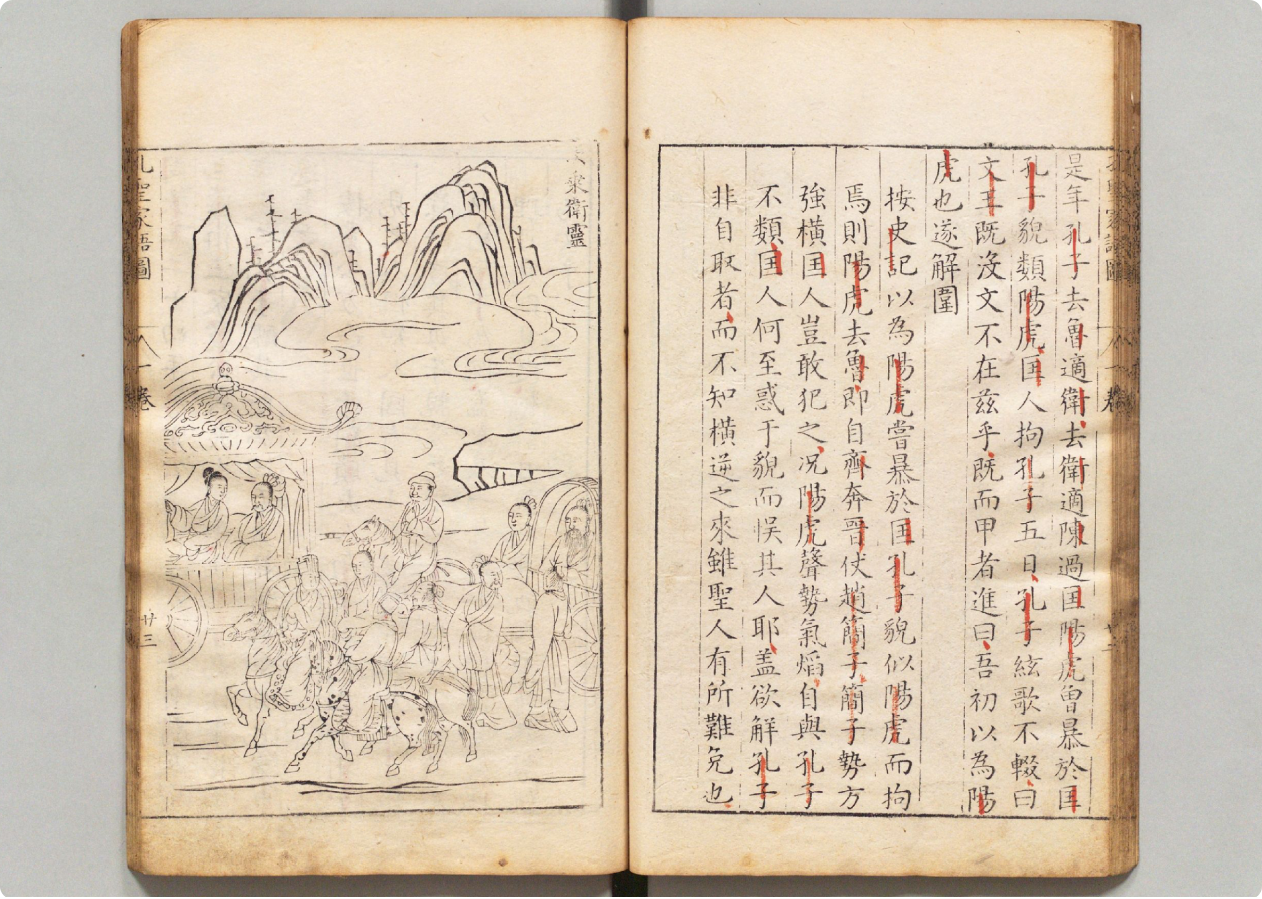 是年孔子去魯適衛去衛適陳過匡陽虎曾暴於匡
孔子貌類陽虎匡人拘孔子五日孔子絃歌不輟曰
文王既沒文不在茲乎既而甲者進曰吾初以為陽
虎也遂解圍
按史記以為陽虎嘗暴於匡孔子貌似陽虎而拘
焉則陽虎去魯即自齊奔晉仗趙簡子簡子勢方
強橫匡人豈敢犯之況陽虎聲勢氣焰自與孔子
不類匡人何至惑于貌而悞其人耶盖欲解孔子
非自取者而不知橫逆之來雖聖人有所難免也
乘衛靈
聖家語圖
一卷
廿三